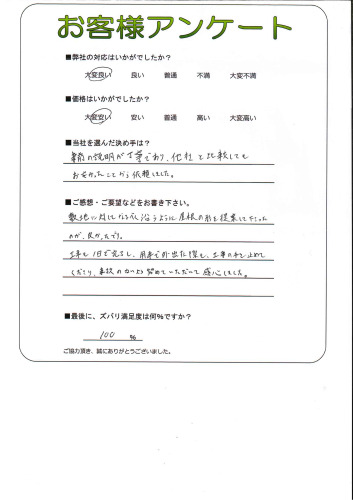 お客様アンケート
■弊社の対応はいかがでしたか？
大変良い 良い 普通 不満 大変不満
■価格はいかがでしたか？
大変安い 安い 普通 高い 大変高い
■当社を選んだ決め手は？
の説明が丁寧であり、他社と比較しても
お安かったことから依頼しました。
■ご感想・ご要望などをお書き下さい。
敷地に対してなるべく沿うように屋根の形を提案して下さった
のが、良かったです。
工事も1日で完了し、用事で外出た際も、工事の手を止めて
くださり、事故のないよう努めていただいて感心しました。
■最後に、ズバリ満足度は何%ですか？
100 %
ご協力頂き、誠にありがとうございました。